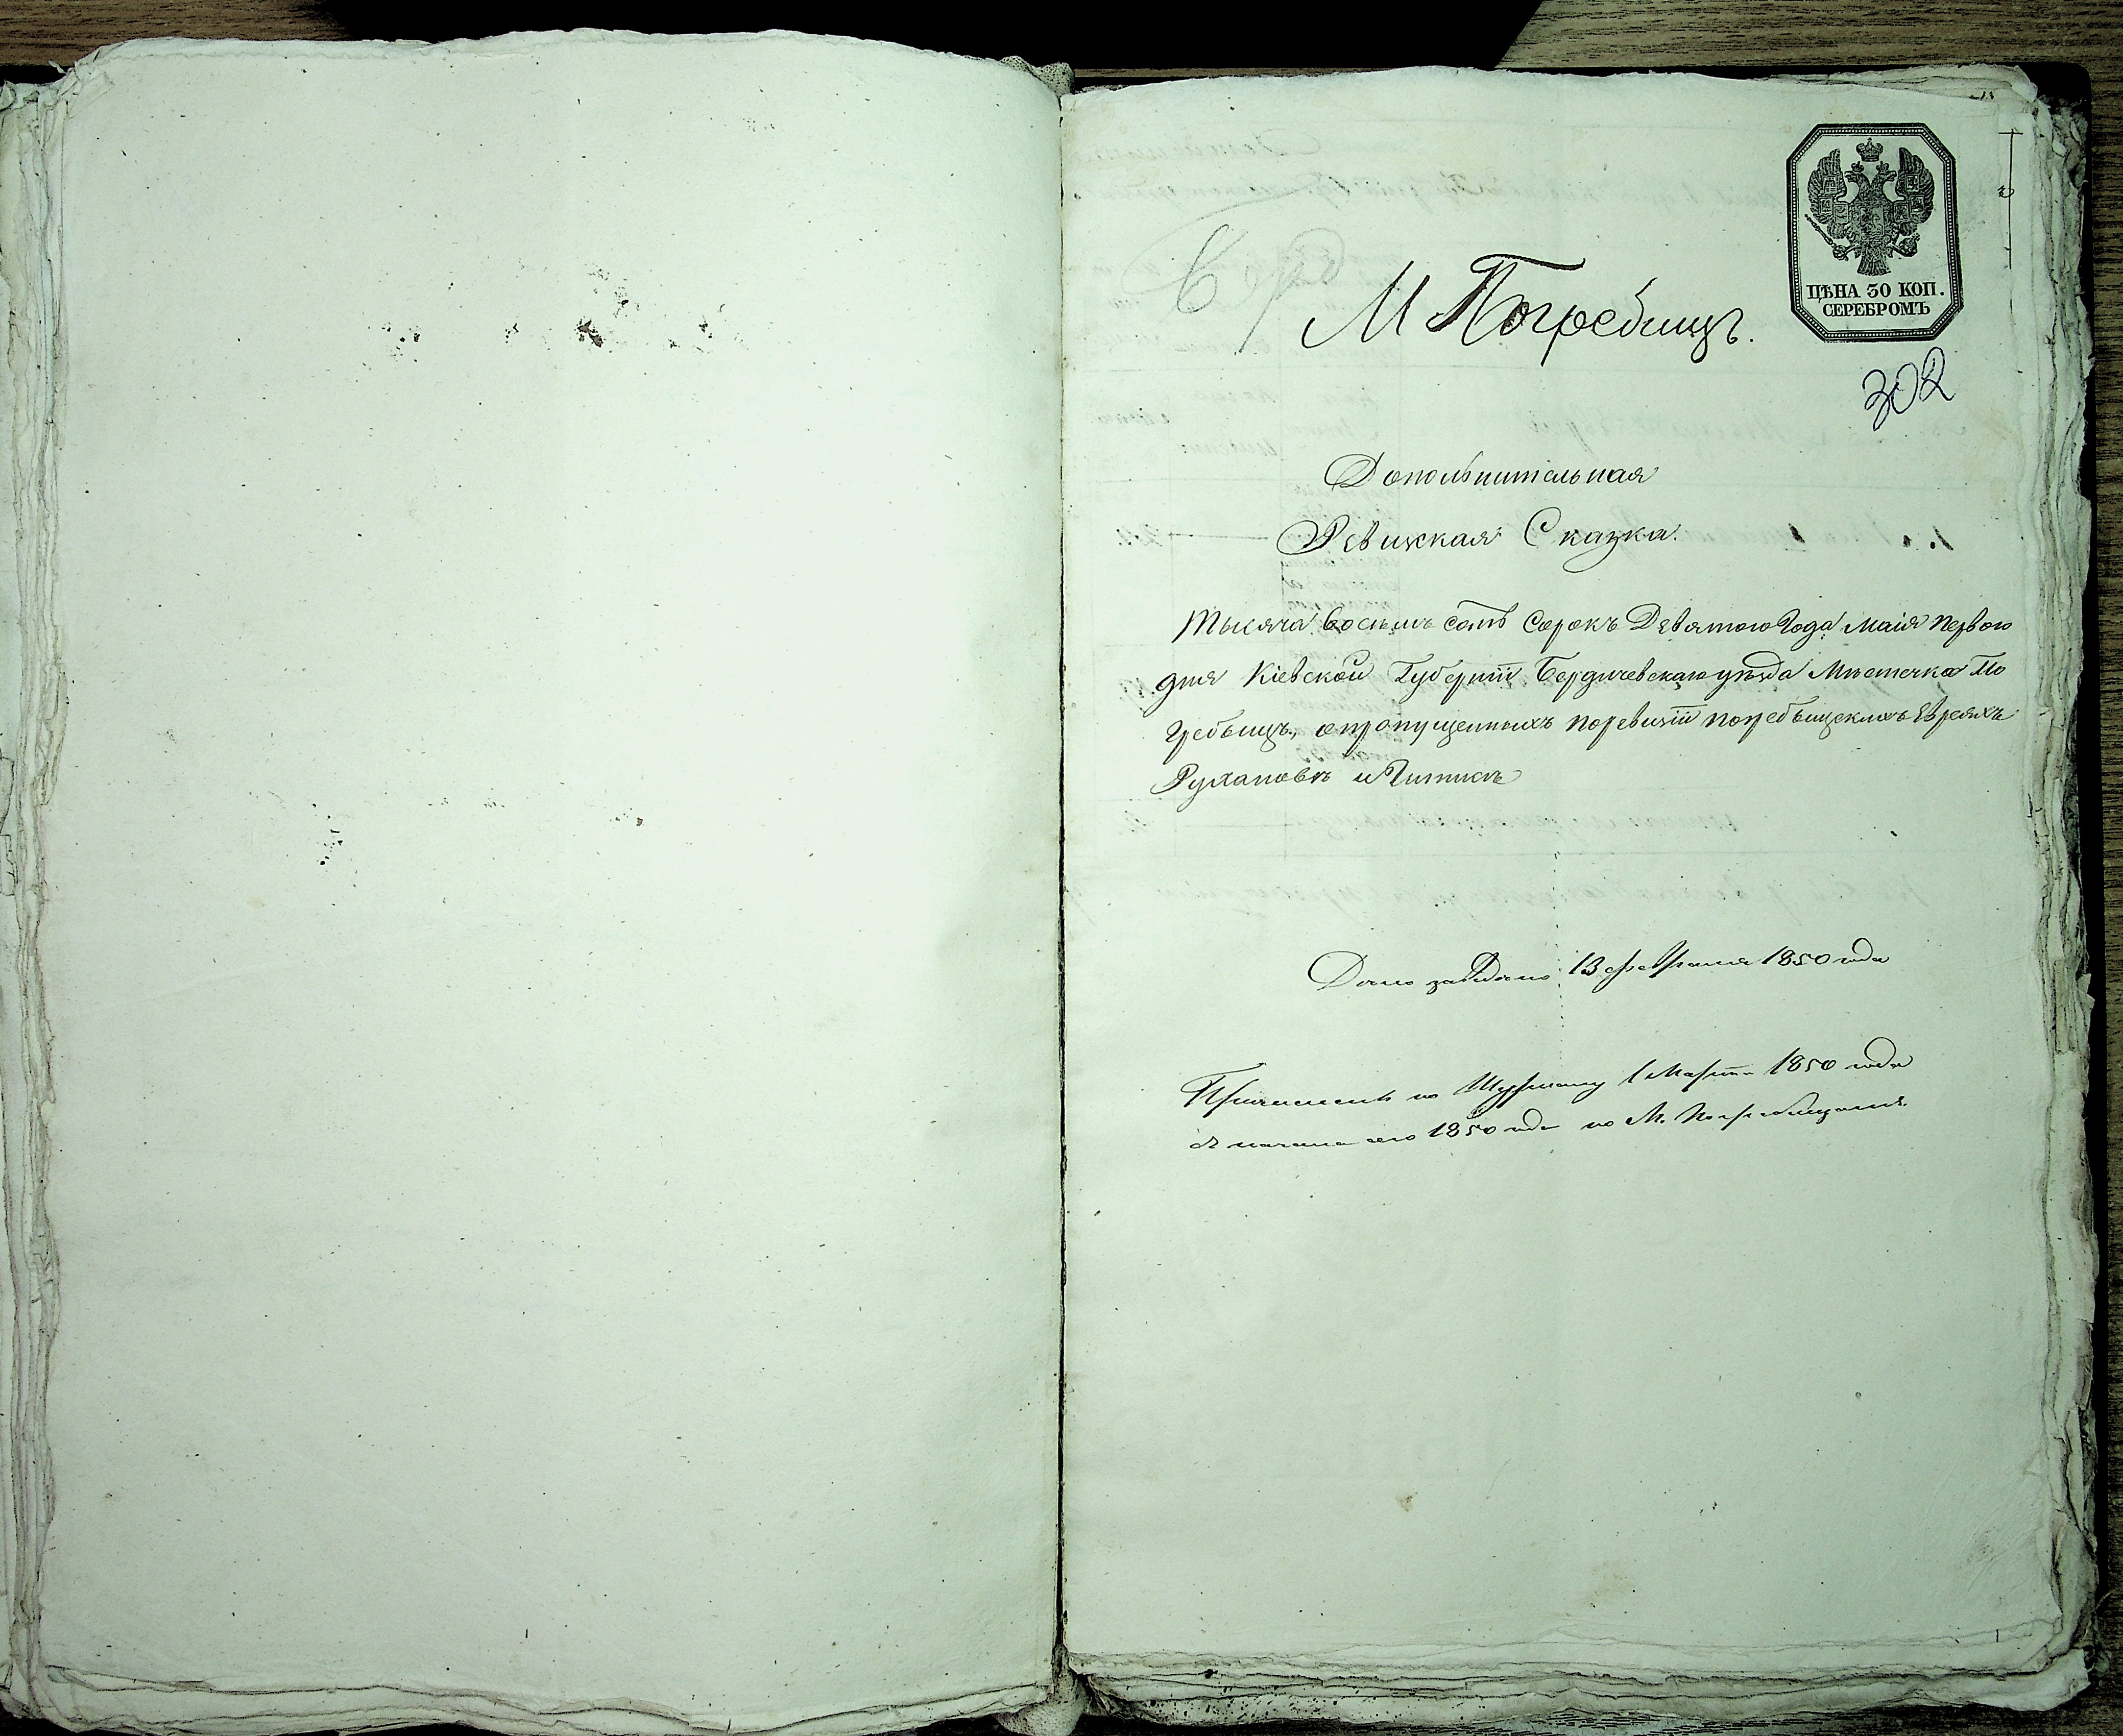 ЦѢНА 30 КОП.
СЕРЕБРОМЪ
М Погребищъ.
302
Дополнительная
Ревизкая Сказка.
Тысяча восемь сотъ сорокъ Девятого Года маія первого
дня Кіевской Губерніи Бердичевскаго уѣзда Мѣстечка По
гребыщъ, о пропущенныхъ поревизіи погребыщскихъ Евреяхъ
и
13 февраля 1850 года
по 1 Марта 1850 года
съ начала сего 1850 года по М. Погребищамъ